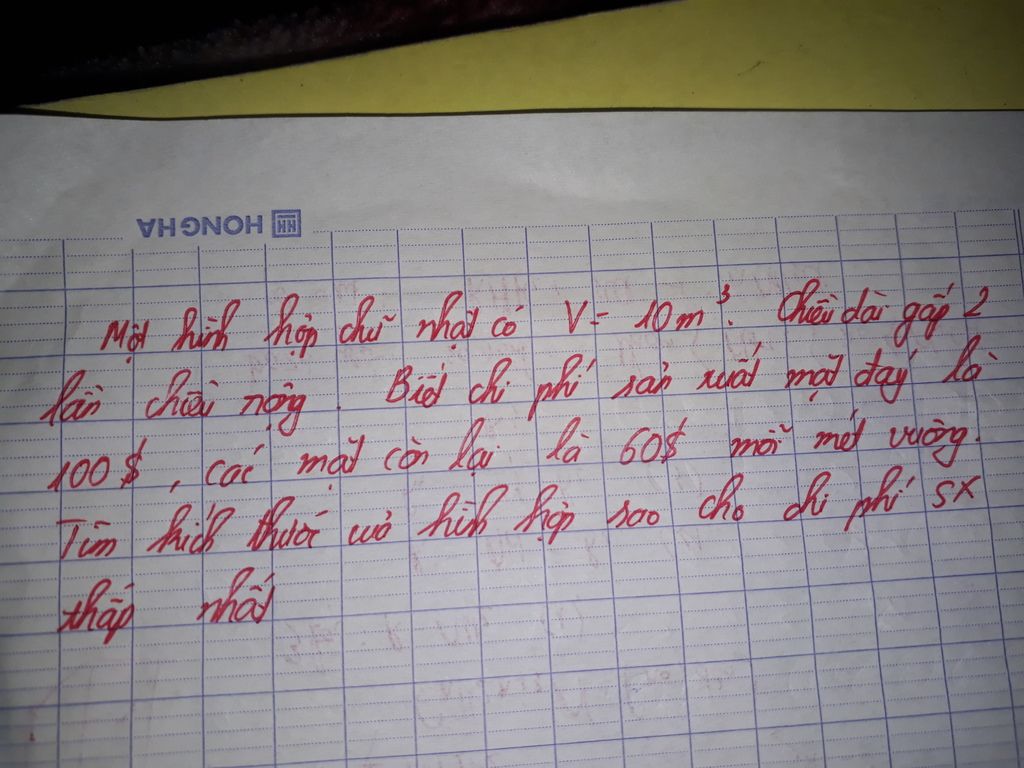 HONGHA
Một hình hộp chữ nhật có V = 10m³. Chiều dài gấp 2
lần chiều rộng. Biết chi phí sản xuất mặt đáy là
100$, các mặt còn lại là 60$ mỗi mét vuông.
Tìm kích thước của hình hộp sao cho chi phí SX
thấp nhất